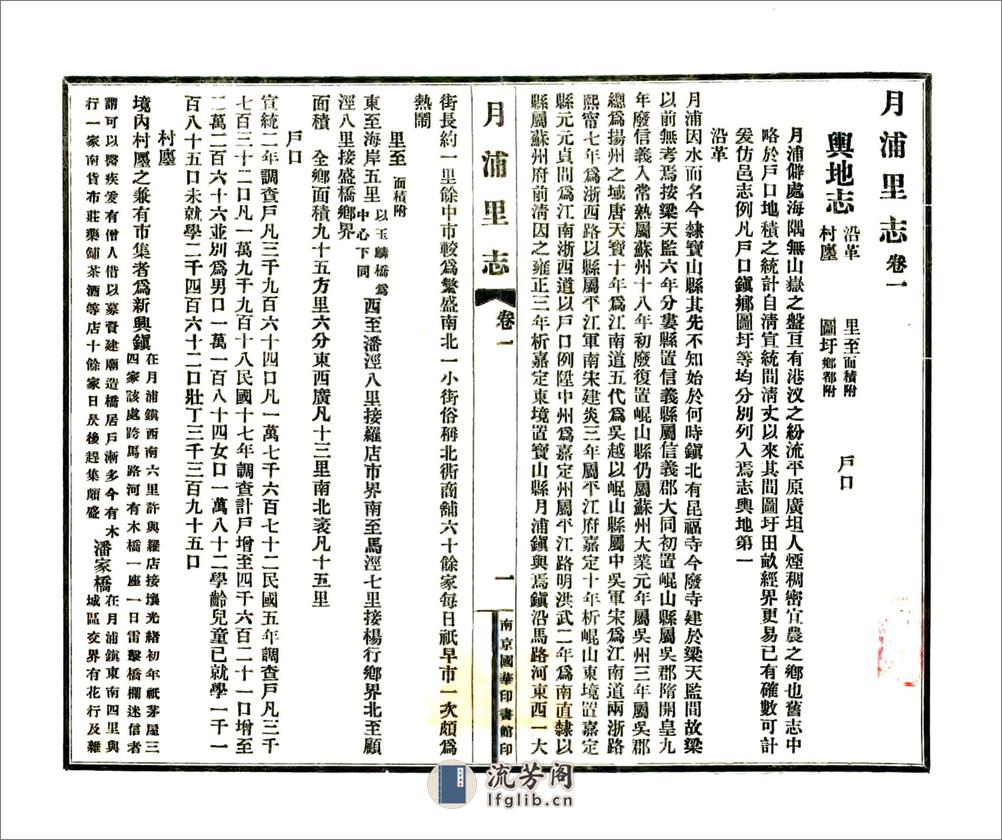 月浦里志卷一
輿地志 沿革 里至面積附 戶口
村廛 圖圩鄉都附
月浦僻處海隅無山嶽之盤亘有港汊之紛流平原廣坦人煙稠密宜農之鄉也舊志中
略於戶口地積之統計自清宣統間清丈以來其間圖圩田畝經界更易已有確數可計
爰仿邑志例凡戶口鎭鄉圖圩等均分別列入焉志輿地第一
沿革
月浦因水而名今隸寶山縣其先不知始於何時鎭北有昆福寺今廢寺建於梁天監間故梁
以前無考焉按梁天監六年分婁縣置信義縣屬信義郡大同初置崐山縣屬吳郡隋開皇九
年廢信義入常熟屬蘇州十八年初廢復置崐山縣仍屬蘇州大業元年屬吳州三年屬吳郡
總爲揚州之域唐天寶十年爲江南道五代爲吳越以崐山縣屬中吳軍宋爲江南道兩浙路
熙甯七年爲浙西路以縣屬平江軍南宋建炎三年屬平江府嘉定十年析崐山東境置嘉定
縣元元貞間爲江南浙西道以戶口例陞中州爲嘉定州屬平江路明洪武二年爲南直隸以
縣屬蘇州府前清因之雍正三年析嘉定東境置寶山縣月浦鎭與焉鎭沿馬路河東西一大
月浦里志 卷一 一 南京國華印書館印
街長約一里餘中市較爲繁盛南北一小街俗稱北衖商舖六十餘家每日祇早市一次頗爲
熱鬧
里至 面積附
東至海岸五里以玉麟橋爲中心下同西至潘涇八里接羅店市界南至馬涇七里接楊行鄉界北至顧
涇八里接盛橋鄉界
面積 全鄉面積九十五方里六分東西廣凡十三里南北袤凡十五里
戶口
宣統二年調查戶凡三千九百六十四口凡一萬七千六百七十二民國五年調查戶凡三千
七百三十二口凡一萬九千九百十八民國十七年調查計戶增至四千六百二十一口增至
二萬二百六十六並別爲男口一萬一百八十四女口一萬八十二學齡兒童已就學一千一
百八十五口未就學二千四百六十二口壯丁三千三百九十五口
村廛
境內村廛之兼有市集者爲新興鎭在月浦鎭西南六里許與羅店接壤光緒初年祇茅屋三
四家該處跨馬路河有木橋一座一日雷擊橋欄迷信者
謂可以醫疾爰有僧人借以募資建廟造橋居戶漸多今有木
行一家南貨布莊藥鋪茶酒等店十餘家日昃後趕集頗盛潘家橋在月浦鎭東南四里與
城區交界有花行及雜
流芳阁
lfglib.cn